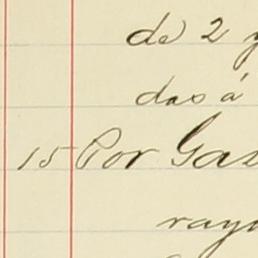 de 2 y
das á
15 Por Gas
raya